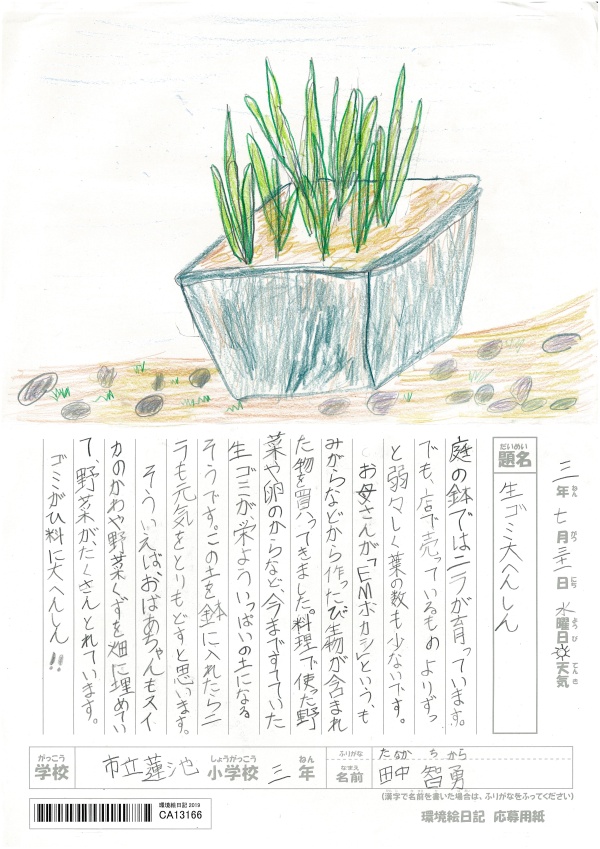 三年七月三十一日水曜日☼天気
ねん がつ にち ようび てんき
だいめい
題名
生ゴミ大へんしん
庭の鉢ではニラが育っています。
でも、店で売っているものよりずっ
と弱々しく葉の数も少ないです。
お母さんが「EMボカシ」という、も
みがらなどから作ったび生物が含まれ
た物を買ってきました。料理で使った野
菜や卵のからなど、今まですてていた
生ゴミが栄よういっぱいの土になる
そうです。この土を鉢に入れたらニ
ラも元気をとりもどすと思います。
そういえば、おばあちゃんもスイ
カのかわや野菜くずを畑に埋めてい
て、野菜がたくさんとれています。
ゴミがひ料に大へんしん!!
がっこう しょうがっこう ねん
学校 市立蓮池 小学校 三 年
ふりがな たなか ちから
なまえ
名前 田中 智勇
(漢字で名前を書いた場合は、ふりがなをふってください)
環境絵日記 2019
CA13166
環境絵日記 応募用紙